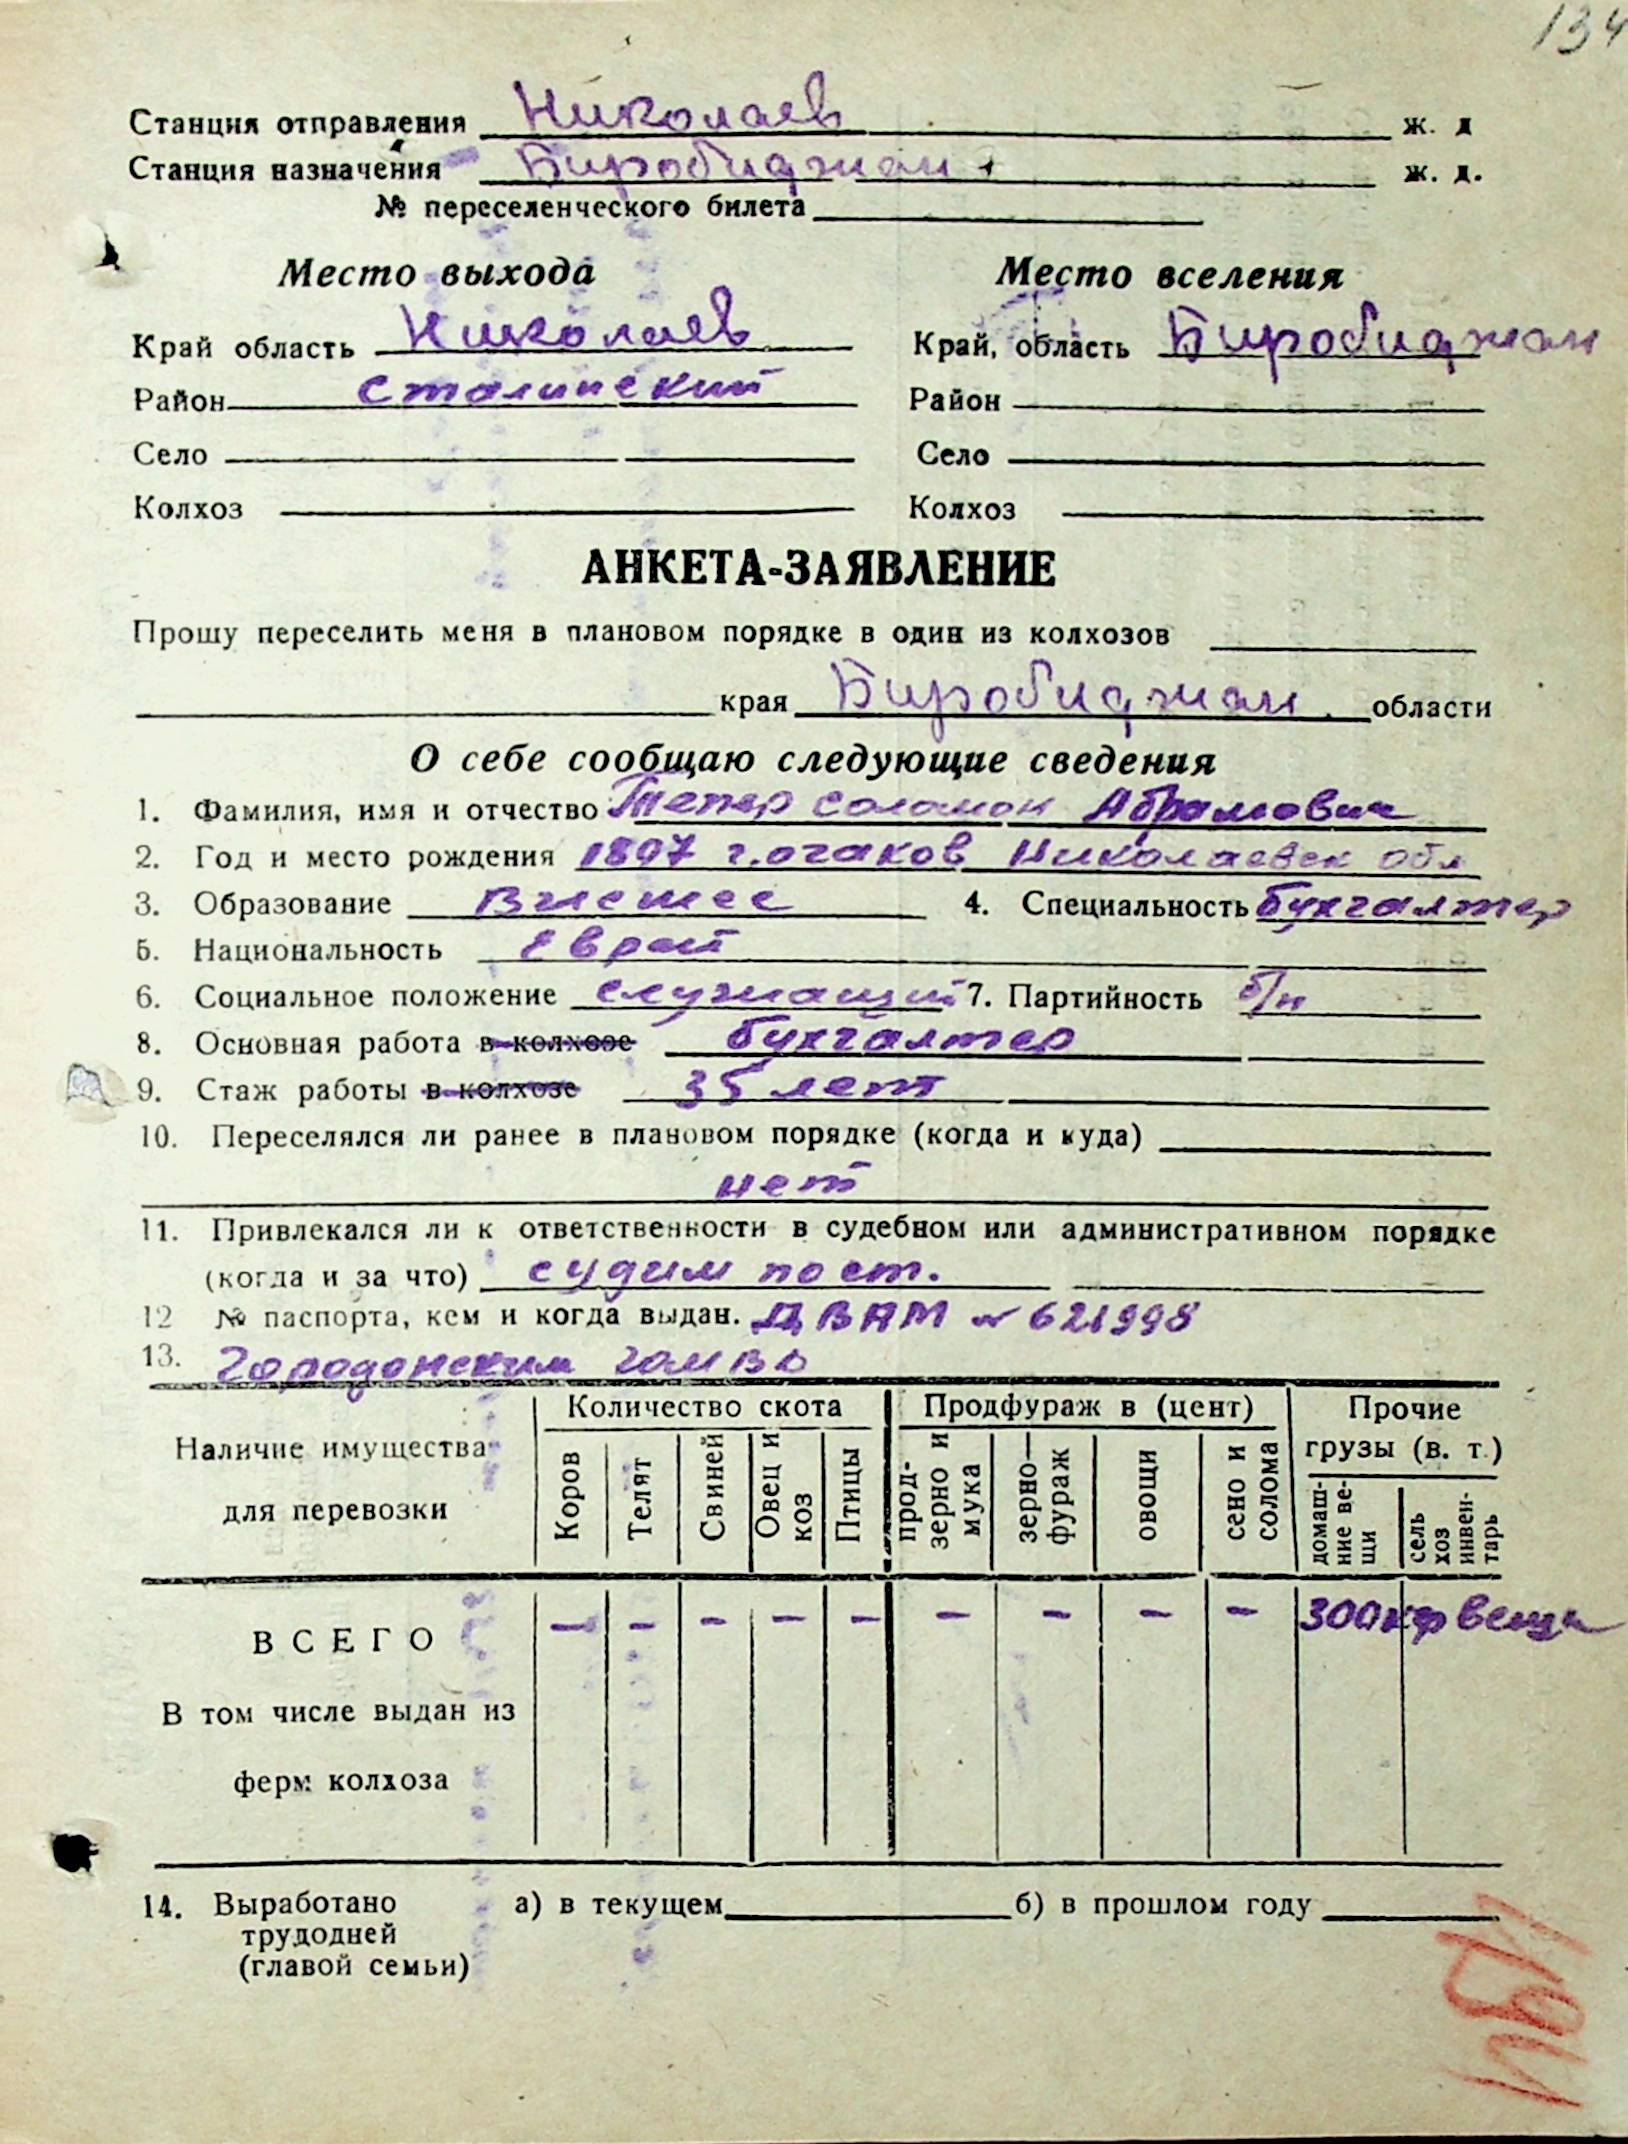 134
Станция отправления Николаев ж. д
Станция назначения Биробиджан 1 ж. д.
№ переселенческого билета
Место выхода Место вселения
Край область Николаев Край, область Биробиджан
Район Сталинский Район
Село Село
Колхоз Колхоз
АНКЕТА-ЗАЯВЛЕНИЕ
Прошу переселить меня в плановом порядке в один из колхозов
края Биробиджан области
О себе сообщаю следующие сведения
1. Фамилия, имя и отчество Тепер Соломон Абрамович
2. Год и место рождения 1897 г. Очаков Николаевск обл
3. Образование Высшее 4. Специальность бухгалтер
5. Национальность еврей
6. Социальное положение служащий 7. Партийность б/п
8. Основная работа в колхозе бухгалтер
9. Стаж работы в колхозе 35 лет
10. Переселялся ли ранее в плановом порядке (когда и куда)
нет
11. Привлекался ли к ответственности в судебном или административном порядке
(когда и за что) судим по ст.
12 № паспорта, кем и когда выдан. № 621998
13.
Наличие имущества для перевозки Количество скота Продфураж в (цент) Прочие грузы (в. т.)
Коров Телят Свиней Овец и коз Птицы прод-зерно и мука зерно-фураж овощи сено и солома домаш-ние ве-щи сель хоз инвен-тарь
ВСЕГО — - - - - - - - - 300 кг вещи
В том числе выдан из
ферм колхоза
14. Выработано а) в текущем б) в прошлом году
трудодней
(главой семьи)